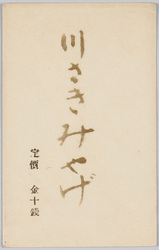 川さきみやげ
定價 金十錢